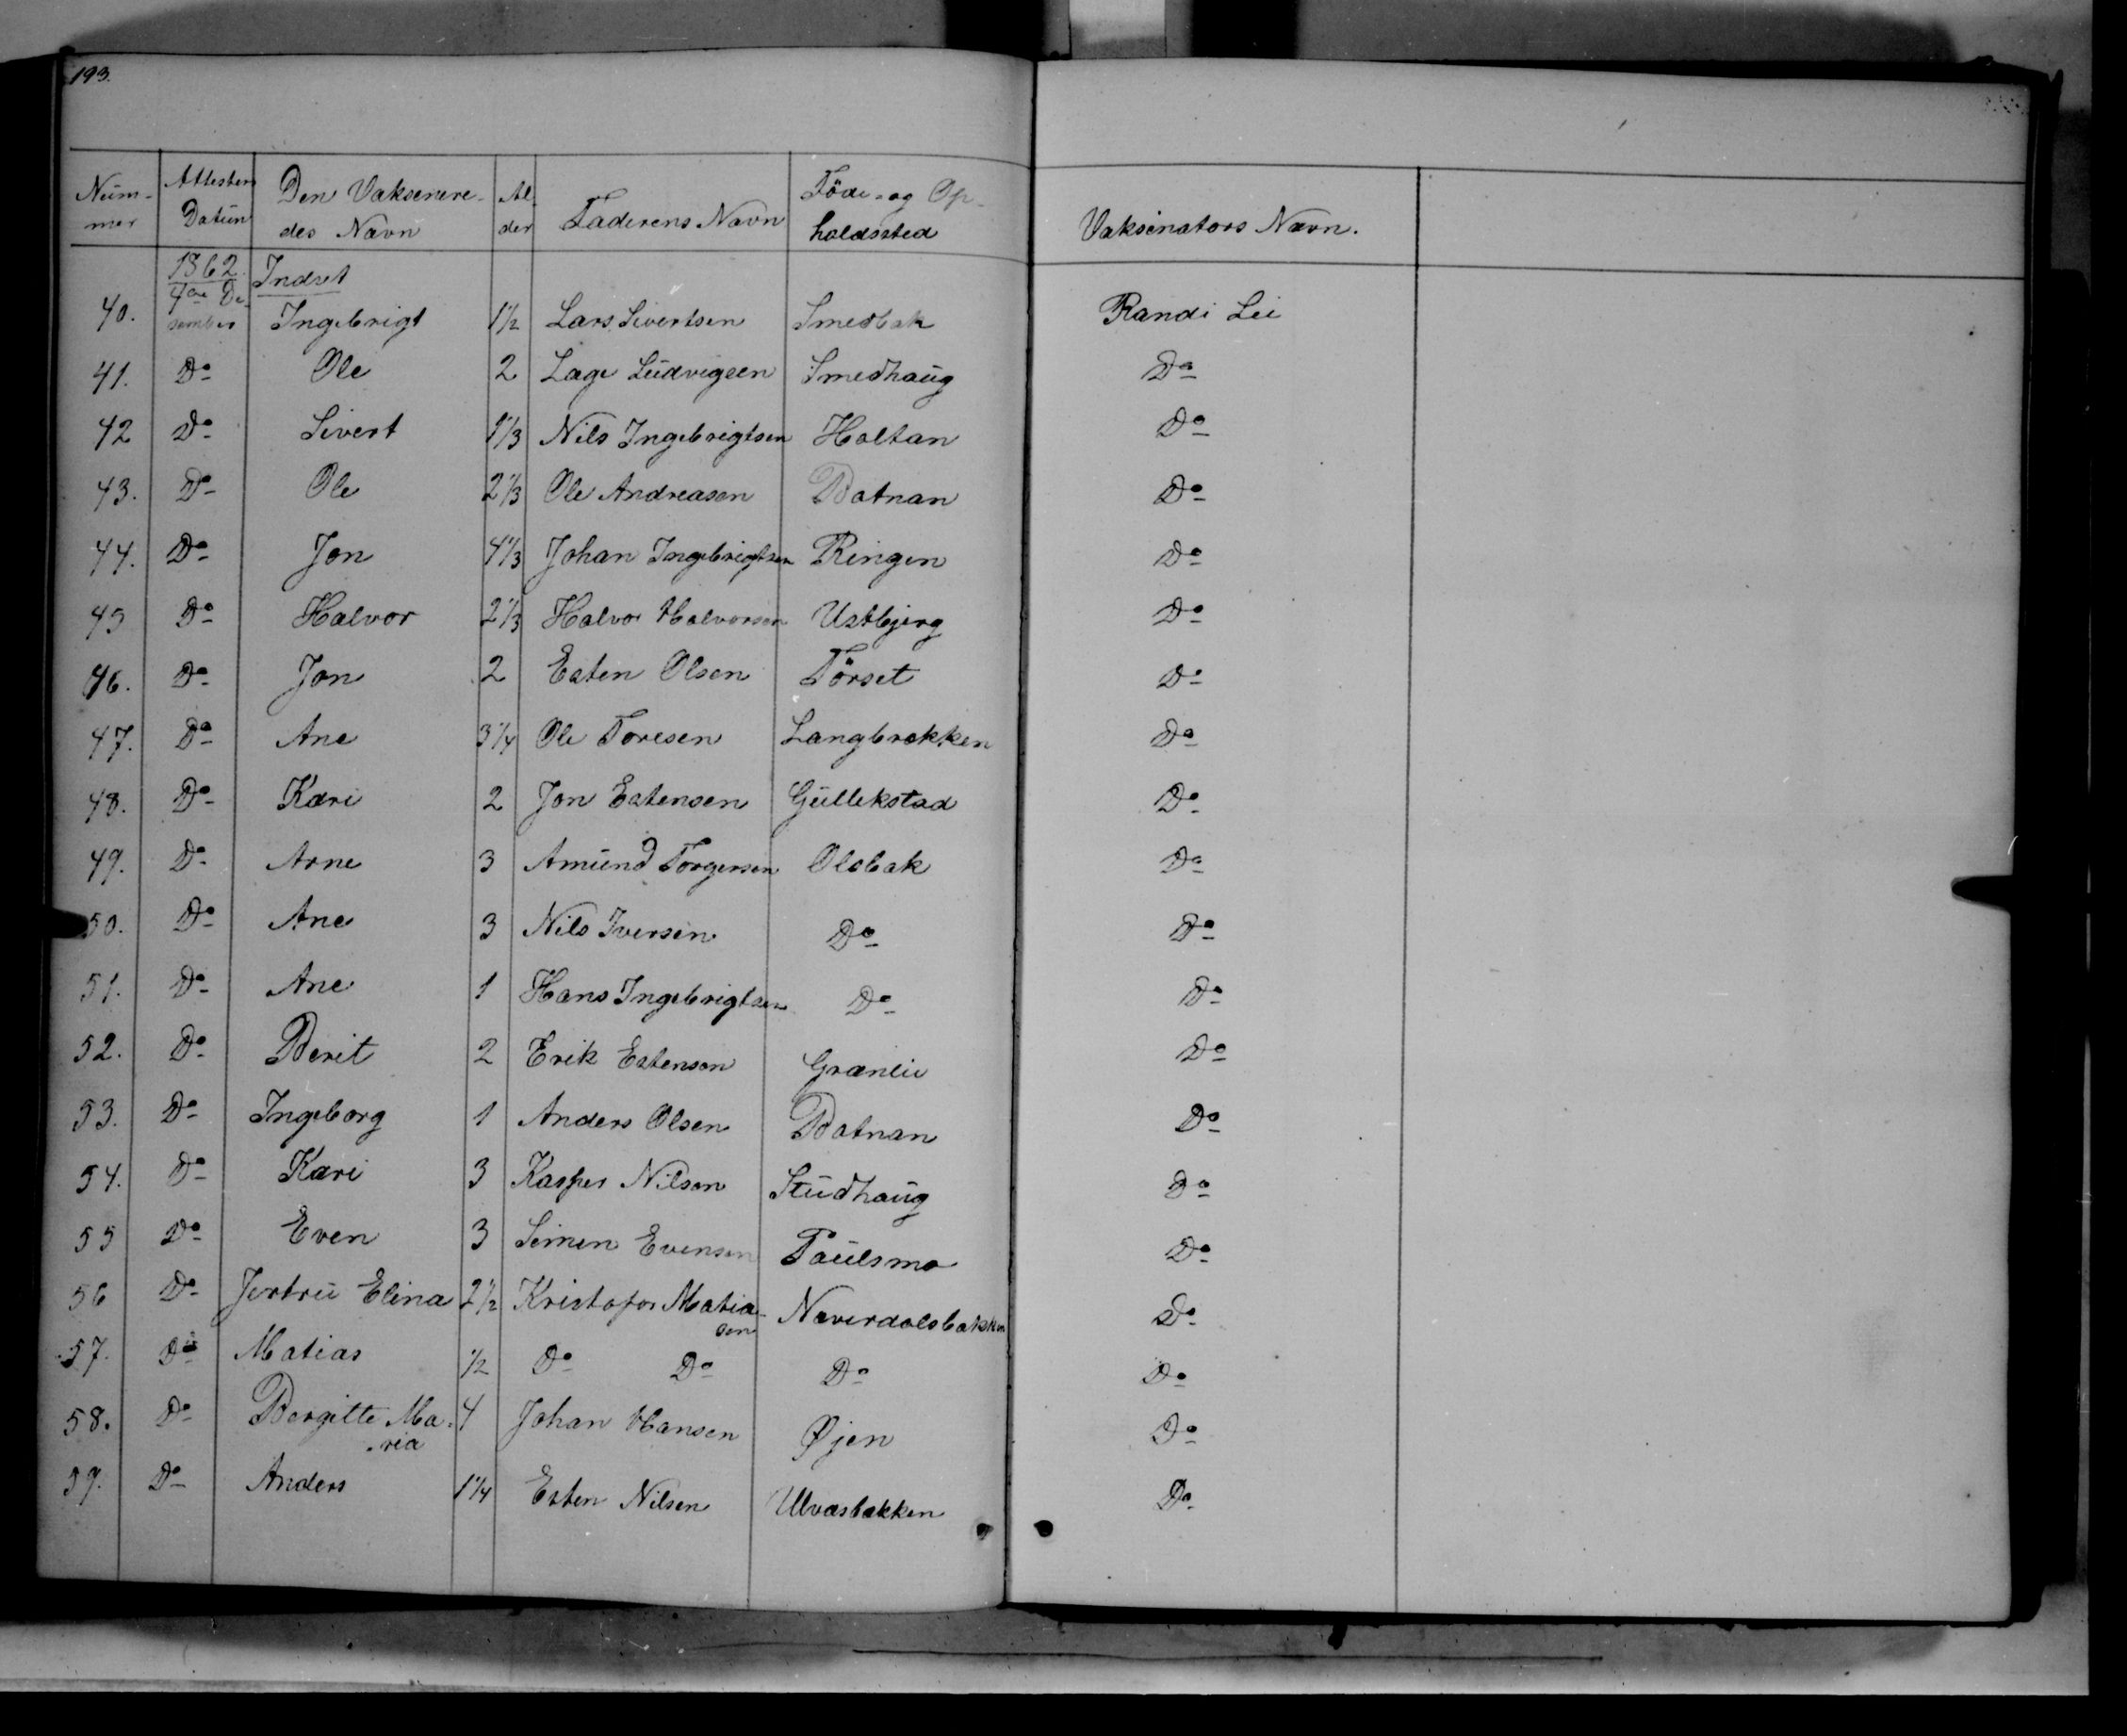 193.
Num-mer | Attestens Datum | Den Vaksenere-des Navn | Al-der | Faderens Navn | Föde- og Op-holdssted | Vaksinators Navn.
1862. Indset
40. | 4de De-sember | Ingebrigt | 1½ | Lars Sivertsen | Smedbak | Randi Lei
41. | Do | Ole | 2 | Lage Ludvigsen | Smedhaug | Do
42 | Do | Sivert | 1⅓ | Nils Ingebrigtsen | Holtan | Do
43. | Do | Ole | 2⅓ | Ole Andreasen | Botnan | Do
44. | Do | Jon | 4⅓ | Johan Ingebrigtsen | Ringen | Do
45 | Do | Halvor | 2⅓ | Halvor Halvorsen | Ustbjerg | Do
46. | Do | Jon | 2 | Esten Olsen | Törset | Do
47. | Do | Ane | 3¼ | Ole Toresen | Langbrekken | Do
48. | Do | Kari | 2 | Jon Estensen | Gullekstad | Do
49. | Do | Arne | 3 | Amund Torgersen | Olsbak | Do
50. | Do | Ane | 3 | Nils Iversen | Do | Do
51. | Do | Ane | 1 | Hans Ingebrigtsen | Do | Do
52. | Do | Berit | 2 | Erik Estensen | Grænlie | Do
53. | Do | Ingeborg | 1 | Anders Olsen | Botnan | Do
54. | Do | Kari | 3 | Kasper Nilsen | Studhaug | Do
55 | Do | Even | 3 | Simen Evensen | Paulsmo | Do
56 | Do | Jertru Elina | 2½ | Kristofor Matia-sen | Næverdalsbakken | Do
57. | Do | Matias | ½ | Do Do | Do | Do
58. | Do | Bergitte Ma-ria | 4 | Johan Hansen | Øjen | Do
59. | Do | Anders | 1¼ | Esten Nilsen | Ulvasbakken | Do